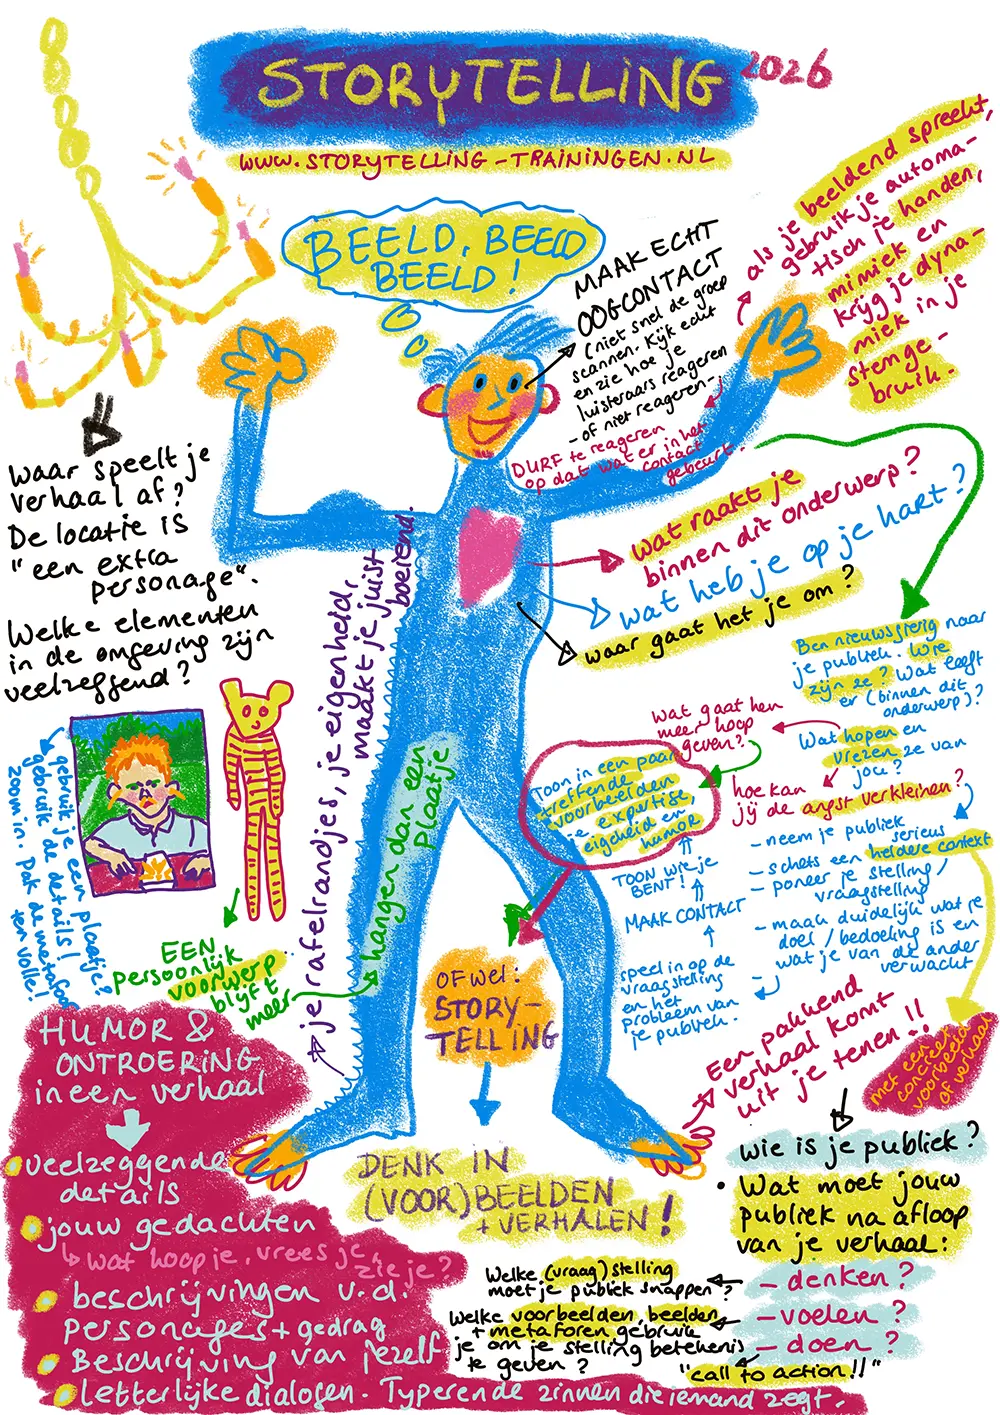 STORYTELLING
2026
WWW.STORYTELLING-TRAININGEN.NL
BEELD, BEELD
BEELD!
MAAK ECHT
OOGCONTACT
(niet snel de groep
scannen. Kijk echt
en zie hoe je
luisteraars reageren
- of niet reageren-)
DURF te reageren
op dat wat er in het
contact
gebeurt.
als je beeldend spreekt,
gebruik je automa-
tisch je handen,
mimiek en
krijg je dyna-
miek in je
stemge-
bruik.
Waar speelt je
verhaal af?
De locatie is
"een extra
personage".
Welke elementen
in de omgeving zijn
veelzeggend?
wat raakt je
binnen dit onderwerp?
wat heb je op je hart?
waar gaat het je om?
Ben nieuwsgierig naar
je publiek. Wie
zijn ze? Wat leeft
er (binnen dit
onderwerp)?
Wat hopen en
vrezen ze van
jou?
Wat gaat hen
meer hoop
geven?
hoe kan
jij de angst verkleinen?
- neem je publiek
serieus
- schets een heldere context
- poneer je stelling/
vraagstelling
- maak duidelijk wat je
doel/bedoeling is en
wat je van de ander
verwacht
met een
concreet
voorbeeld
of verhaal
speel in op de
vraagstelling
en het
probleem van
je publiek.
MAAK CONTACT
TOON WIE JE
BENT!
Toon in een paar
treffende
voorbeelden
je expertise,
eigheid en
humor
je rafelrandjes, je eigenheid,
maakt je juist
boeiend.
gebruik je een plaatje?
gebruik de details!
zoom in. Pak de metafoor
ten volle!
EEN
persoonlijk
voorwerp
blijft
meer
hangen dan een
plaatje
OFWEL:
STORY-
TELLING
DENK IN
(VOOR)BEELDEN
+ VERHALEN!
Een pakkend
verhaal komt
uit je tenen!!
wie is je publiek?
• Wat moet jouw
publiek na afloop
van je verhaal:
- denken?
- voelen?
- doen?
"call to action!!"
Welke (vraag)stelling
moet je publiek snappen?
Welke voorbeelden, beelden
+ metaforen gebruik
je om je stelling betekenis
te geven?
HUMOR &
ONTROERING
in een verhaal
veelzeggende
details
jouw gedachten
wat hoop je, vrees je, zie je?
beschrijvingen v.d.
personages + gedrag
Beschrijving van jezelf
letterlijke dialogen. Typerende zinnen die iemand zegt.